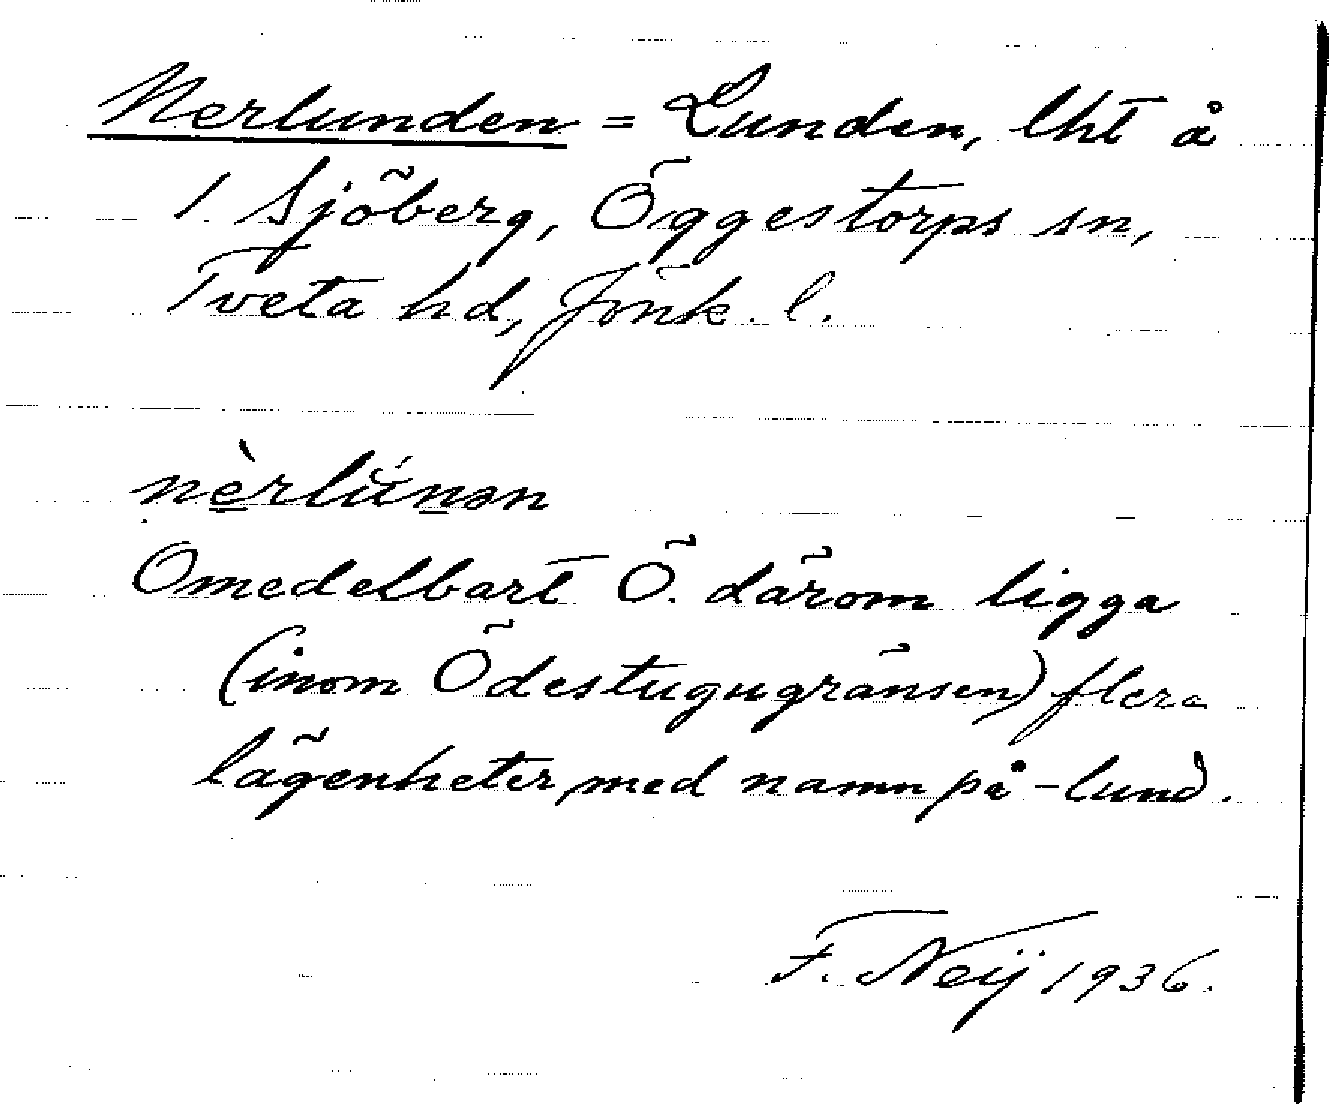 Nerlunden = Lunden, lht å
1 Sjöberg, Öggestorps sn,
Tveta hd, Jönk. l.
nèrlŭ́nən
Omedelbart Ö. därom ligga
(inom Ödestugugränsen) flera
lägenheter med namn på -lund.
F. Neij 1936.